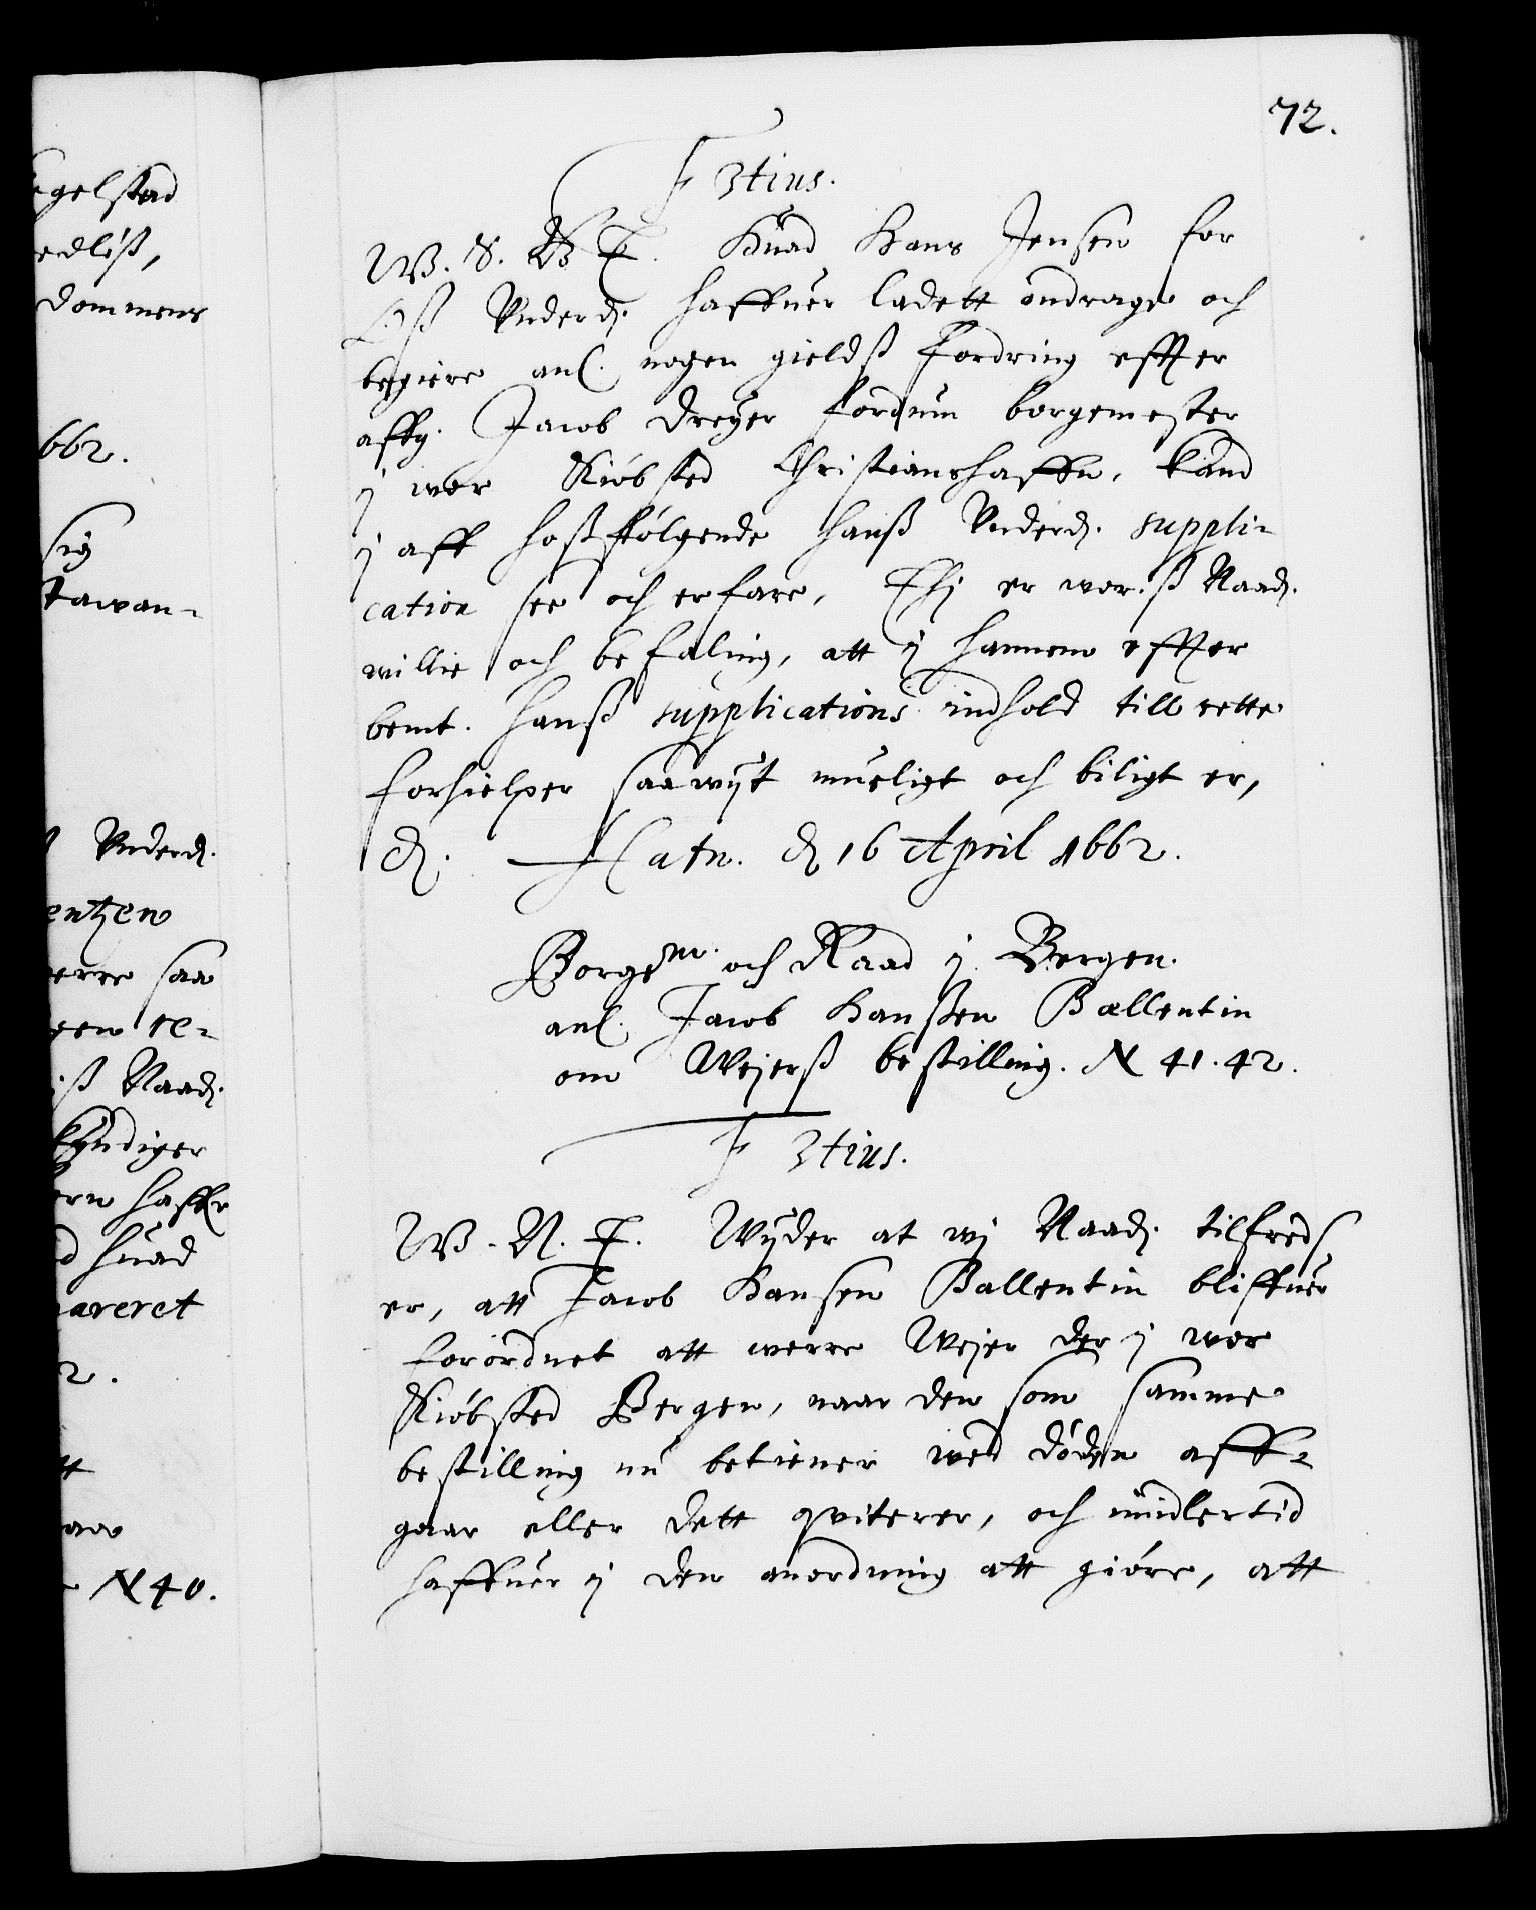 egelstad
edliß,
dommens
662.
sig
tawan-
Underd.
entzen
verre saa
geen re-
iß Naad.
kyndiger
ern haffr
d huad
areret
2.
tt
N 40.
72.
F 3tius.
W. S. G T. Huad Hans Jensen for
Oß Underd. haffuer ladett andrage och
begiere anl. nogen gieldß fordring effter
affg. Jacob Dreyer fordum borgemester
j wor Kiøbsted Christianshaffn, kand
j aff hoßfølgende hanß Underd. suppli-
cation see och erfare, Thj er wor.ß Naad.
willie och befaling, att j hannem effter
bemt. hanß supplications indhold till rette
forhielper saawijt mueligt och biligt er,
D. Hafn. d 16 April 1662.
Borgem. och Raad j Bergen.
anl. Jacob Hanßen Ballentin
om Wejerß bestilling. N 41.42.
F 3tius.
W. N. T. Wijder at wj Naad. tilfreds
er, att Jacob Hansen Ballentin bliffuer
forordnet att werre Wejer der j wor
Kiøbsted Bergen, naar den som samme
bestilling nu betiener wed døden aff-
gaar eller dett qviterer, och imidlertid
haffuer j den anordning att giøre, att